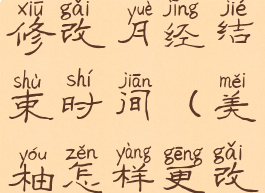 xiū gǎi yuè jīng jié
修改 月经结
shù shí jiān měi
束时间（美
yóu zěn yàng gēng gǎi
柚怎样更改